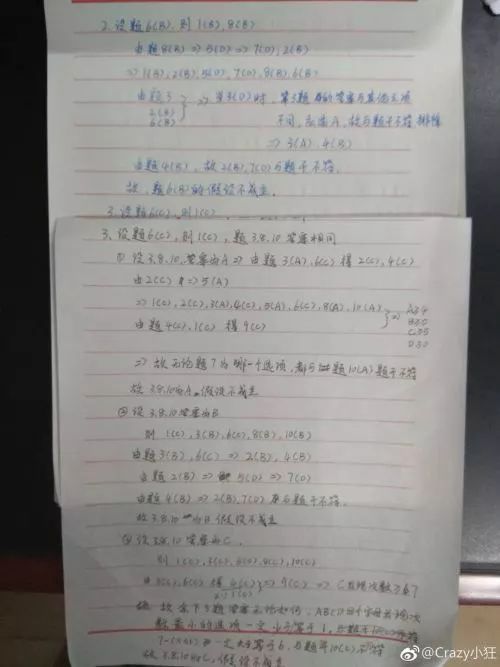 2. 设题6(B), 则1(B), 8(B)
由题8(B) => 5(D) => 7(D), 2(B)
=> 1(B), 2(B), 5(D), 7(D), 8(B), 6(B)
由题3
2(B)
6(B)
=> 当3(D)时, 第3题的答案与其他三项
不同, 应选A, 故与题干不符 排除
=> 3(A), 4(B)
由题4(B), 故2(B), 7(D)与题干不符.
故, 题6(B)的假设不成立.
3. 设题6(C), 则1(C),
3. 设题6(C), 则1(C), 题3.8.10答案相同
① 设3.8.10.答案为A => 由题3(A), 6(C)得2(C), 4(C)
由2(C) => 5(A)
=> 1(C), 2(C), 3(A), 4(C), 5(A), 6(C), 8(A), 10(A)
由题4(C), 1(C) 得9(C)
=>
A34
B30
D30
=> 故无论题7为哪一个选项, 都与题10(A)题干不符
故3.8.10为A 假设不成立
② 设3.8.10答案为B
则 1(C), 3(B), 6(C), 8(B), 10(B)
由题3(B), 6(C) => 2(B), 4(B)
由题2(B) => 5(D) => 7(D)
由题4(B) => 2(B), 7(D) 与题干不符.
故3.8.10为B 假设不成立
③ 设3.8.10答案为C.
则 1(C), 3(C), 6(C), 8(C), 10(C)
由3(C), 6(C) 得4(C) => 9(C) => C出现次数≥6
故余下3题答案无论如何, ABCD四个字母出现次
数最小的选项一定小于等于1, 与题干10(C)
一定大于等于6, 与题10(C)不符
故3.8.10为C, 假设不成立
@Crazy小狂